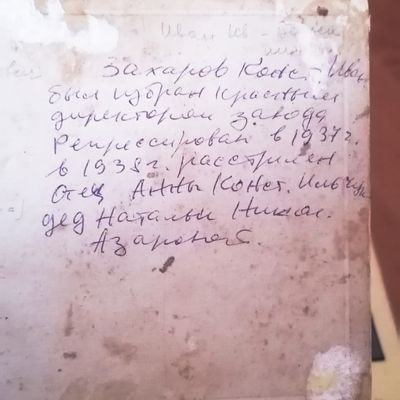 Иван Ив
Захаров Конст. Иван
был избран красным
директором завода
Репрессирован в 1937г.
в 1938г. расстрилен
Отец Анны Конст. Ильчук
дед Натальи Никол.
Азаровой.